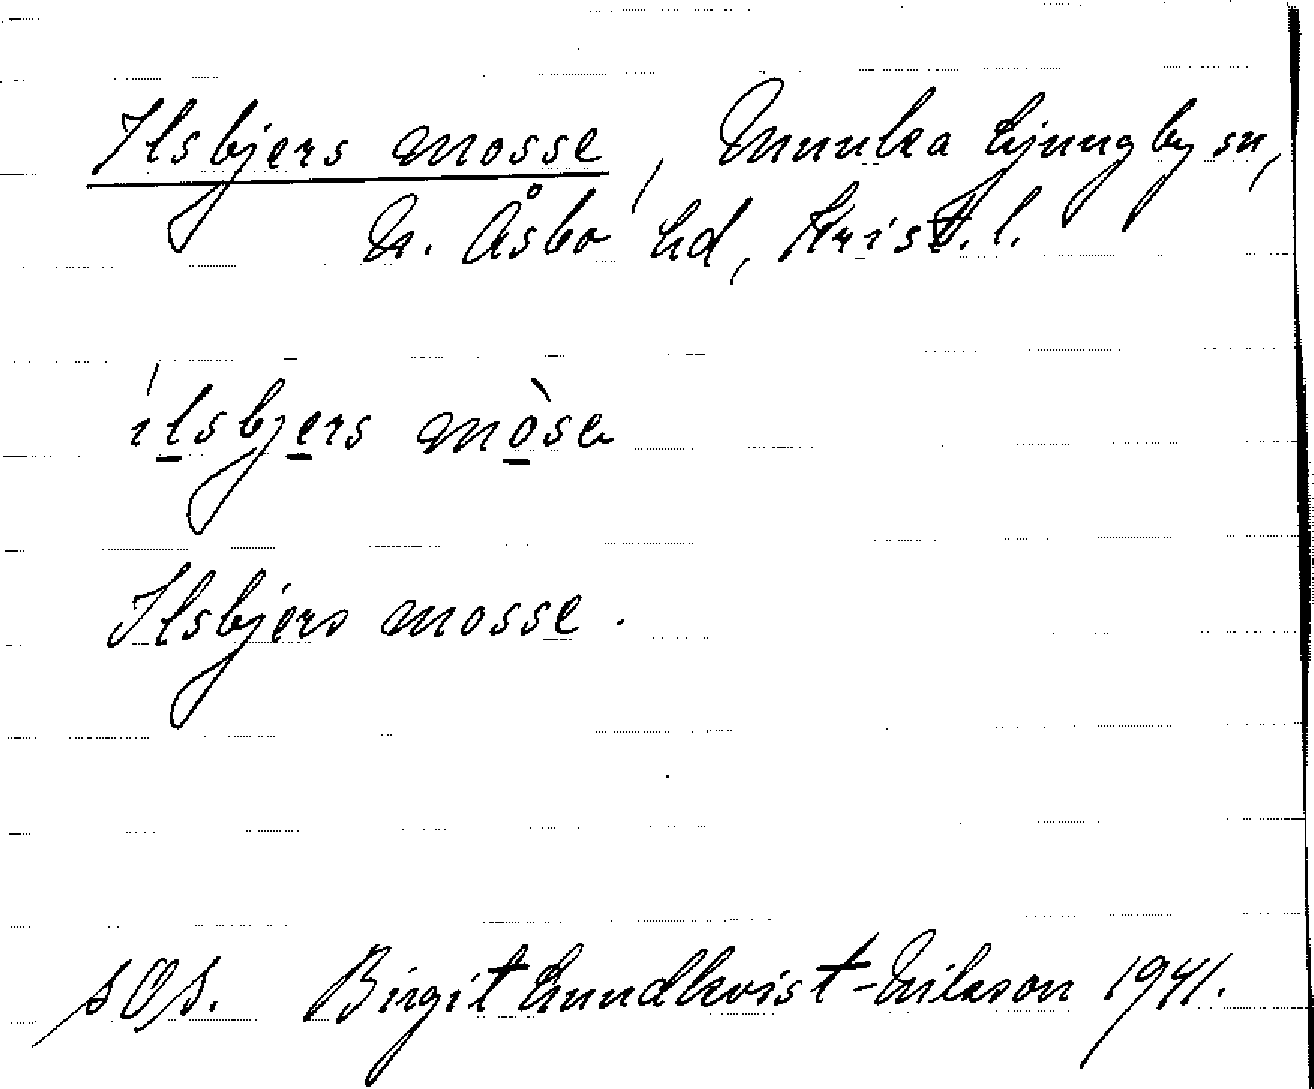 Ilsbjers mosse, Munka Ljungby sn,
N. Åsbo hd, Krist. l.
ílsbjers mòse
Ilsbjers mosse.
SOS. Birgit Lundkvist-Nilsson 1941.